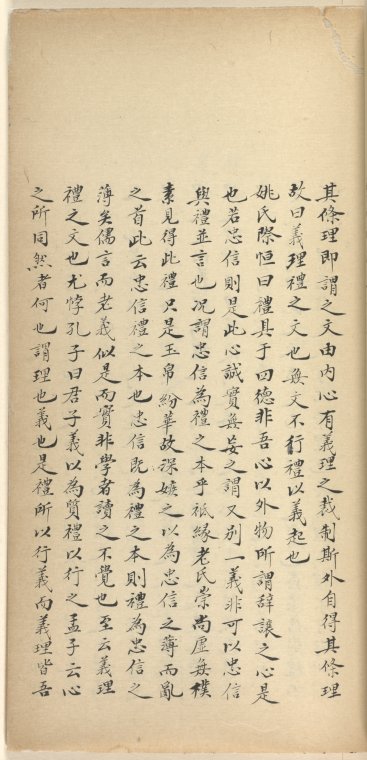 其條理即謂之文由内心有義理之裁制斯外自得其條理
故曰義理禮之文也無文不行禮以義起也
姚氏際恒曰禮具于四德非吾心以外物所謂辭讓之心是
也若忠信則是此心誠實無妄之謂又别一義非可以忠信
與禮並言也况謂忠信為禮之本乎祇緣老氏崇尚虚無樸
素見得此禮只是玉帛紛華故深嫉之以為忠信之薄而亂
之首此云忠信禮之本也忠信既為禮之本則禮為忠信之
薄矣儒言而老義似是而實非學者讀之不覺也至云義理
禮之文也尤悖孔子曰君子義以為質禮以行之孟子云心
之所同然者何也謂理也義也是禮所以行義而義理皆吾